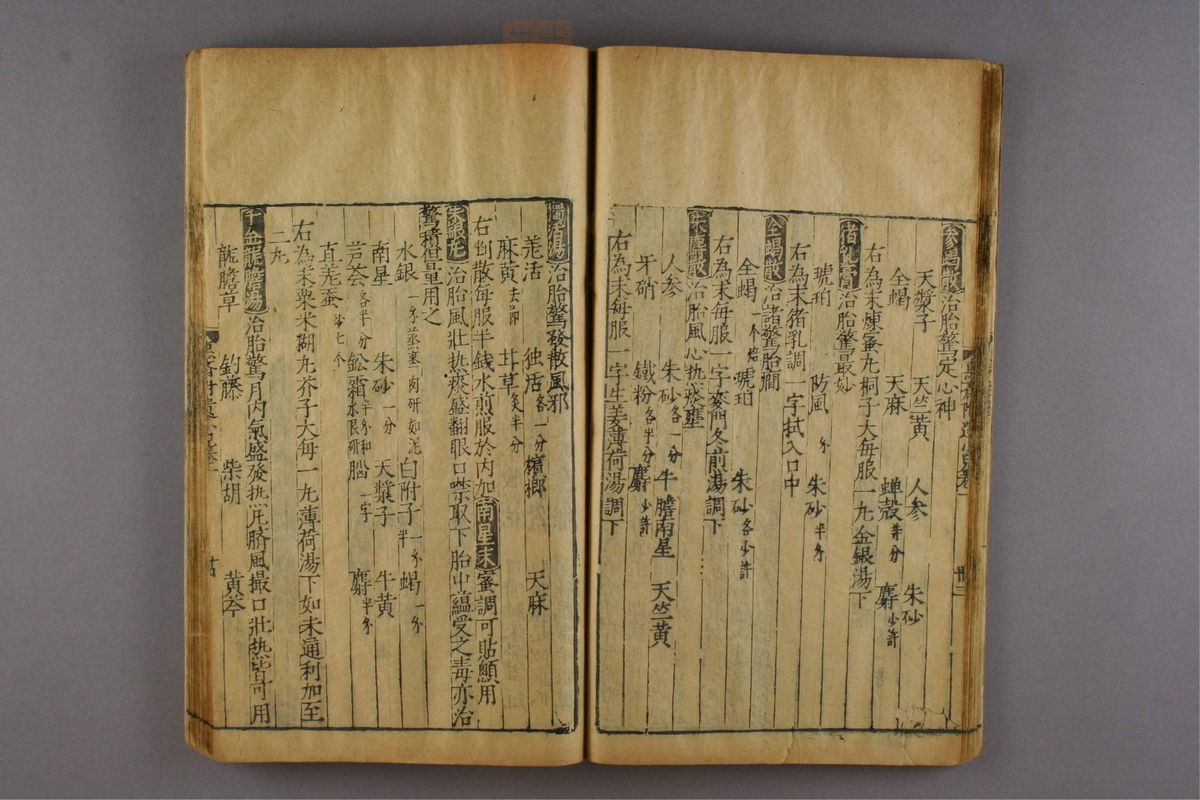 參蝎散治胎驚定心神
天漿子 天竺黃 人參 朱砂
全蝎 天麻 蟬殼等分 麝少許
右為末煉蜜丸桐子大每服一丸金銀湯下
猪乳膏治胎驚最妙
琥珀 防風分 朱砂半分
右為末猪乳調一字拭入口中
全蝎散治諸驚胎癇
全蝎一个焙 琥珀 朱砂各少許
右為末每服一字麥門冬煎湯調下
朱麝散治胎風心热痰壅
人參 朱砂各一分 牛膽南星 天竺黃
牙硝 鐵粉各半分 麝少許
右為末每服一字生姜薄荷湯調下
獨活湯治胎驚發散風邪
羌活 独活各一分 檳榔 天麻
麻黃去節 甘草炙半分
右剉散每服半錢水煎服於内加南星末蜜調可貼顖用
朱銀丸治胎風壯热痰盛翻眼口噤取下胎中蘊受之毒亦治
驚積但量用之
水銀一分蒸棗肉研如泥 白附子一分半 蝎一分
南星 朱砂一分 天漿子 牛黃
芦荟各半分 鈆霜半分和水銀研 腦一字 麝半分
直姜蚕炒七个
右為末粟米糊丸芥子大每一丸薄荷湯下如未通利加至
二丸
千金龍膽湯治胎驚月内氣盛發热臍風撮口壯热皆可用
龍膽草 釣藤 柴胡 黃芩